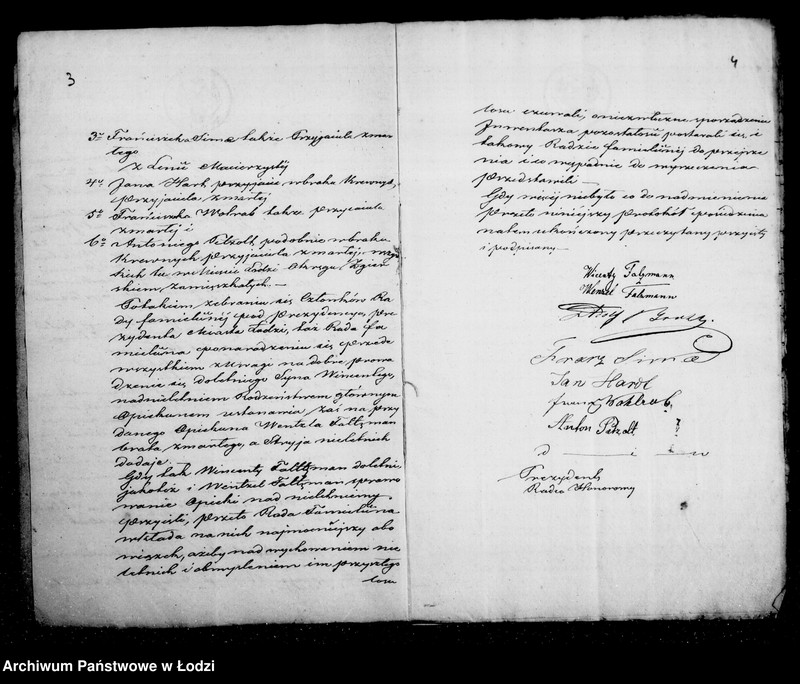 3
3º Franciszka Sima także Przyjaciela zmar
łego
z Linii Macierzystej
4º Jana Hartl przyjaciela w braku Krewnych,
przyjaciela zmarłej
5º Franciszka Walrab także przyjaciela
zmarłej i
6º Antoniego Petzolt, podobnie w braku
Krewnych przyjaciela zmarłej, wszy
stkich tu w Mieście Łodzi Okręgu Zgier
skiem zamieszkałych. —
Po takiem zebraniu się Członków Ra
dy familijnej pod prezydencyą, Pre
zydenta Miasta Łodzi, taż Rada fa
milijna po naradzeniu się, przede
wszystkiem z uwagi na dobre prowa
dzenie się doletniego Syna Wincentego,
nad nieletniem Rodzeństwem głównym
Opiekunem ustanawia, zaś na przy
danego Opiekuna Wentzla Faltzman
brata zmarłego, a Stryja nieletnich
dodaje.
Gdy tak Wincenty Faltzman doletni
jakoteż i Wentzel Faltzman sprawo
wanie Opieki nad nieletniemi
przyjęli, przeto Rada Familijna
wkłada na nich najmocniejszy obo
wiązek, ażeby nad wychowaniem nie
letnich i obmyśleniem im przyszłego
losu
4
losu czuwali, a niezwłocznie sporządzenie
Inwentarza pozostałości postarali się i
takowy Radzie familijnej do przejrze
nia i co wypadnie do wyrzeczenia
przedstawili —
Gdy więcej niebyło co do nadmienienia
przeto niniejszy Protokół spółudzia
natem ukończony przeczytany przyjęty
i podpisany —
Wincenty Falzmann
Wenzel Falzmann
Franz Sima
Jan Hardl
Franz Wohlrab
Anton Petzolt
d — i — n
Prezydent
Radca Honorowy
Archiwum Państwowe w Łodzi